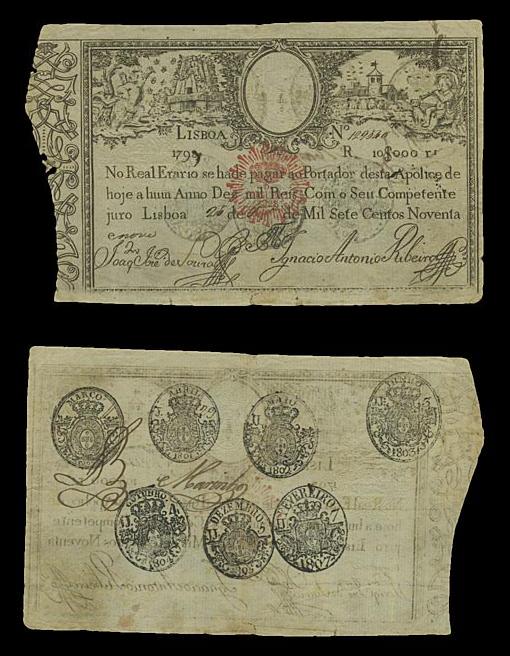 LISBOA Nº
1799 R 10$000 rˢ
No Real Erario se ha de pagar ao Portador desta Apolice de
hoje a hum Anno Dez mil Reis Com o Seu Competente
juro Lisboa 26 de de Mil Sete Centos Noventa
e nove
Joaq Joze de Souza Ignacio Antonio Ribeiro
MARÇO ABRIL MAIO JUNHO
1801 1802 1803
e Marinho
OUTUBRO DEZEMBRO FEVEREIRO
1804 1807